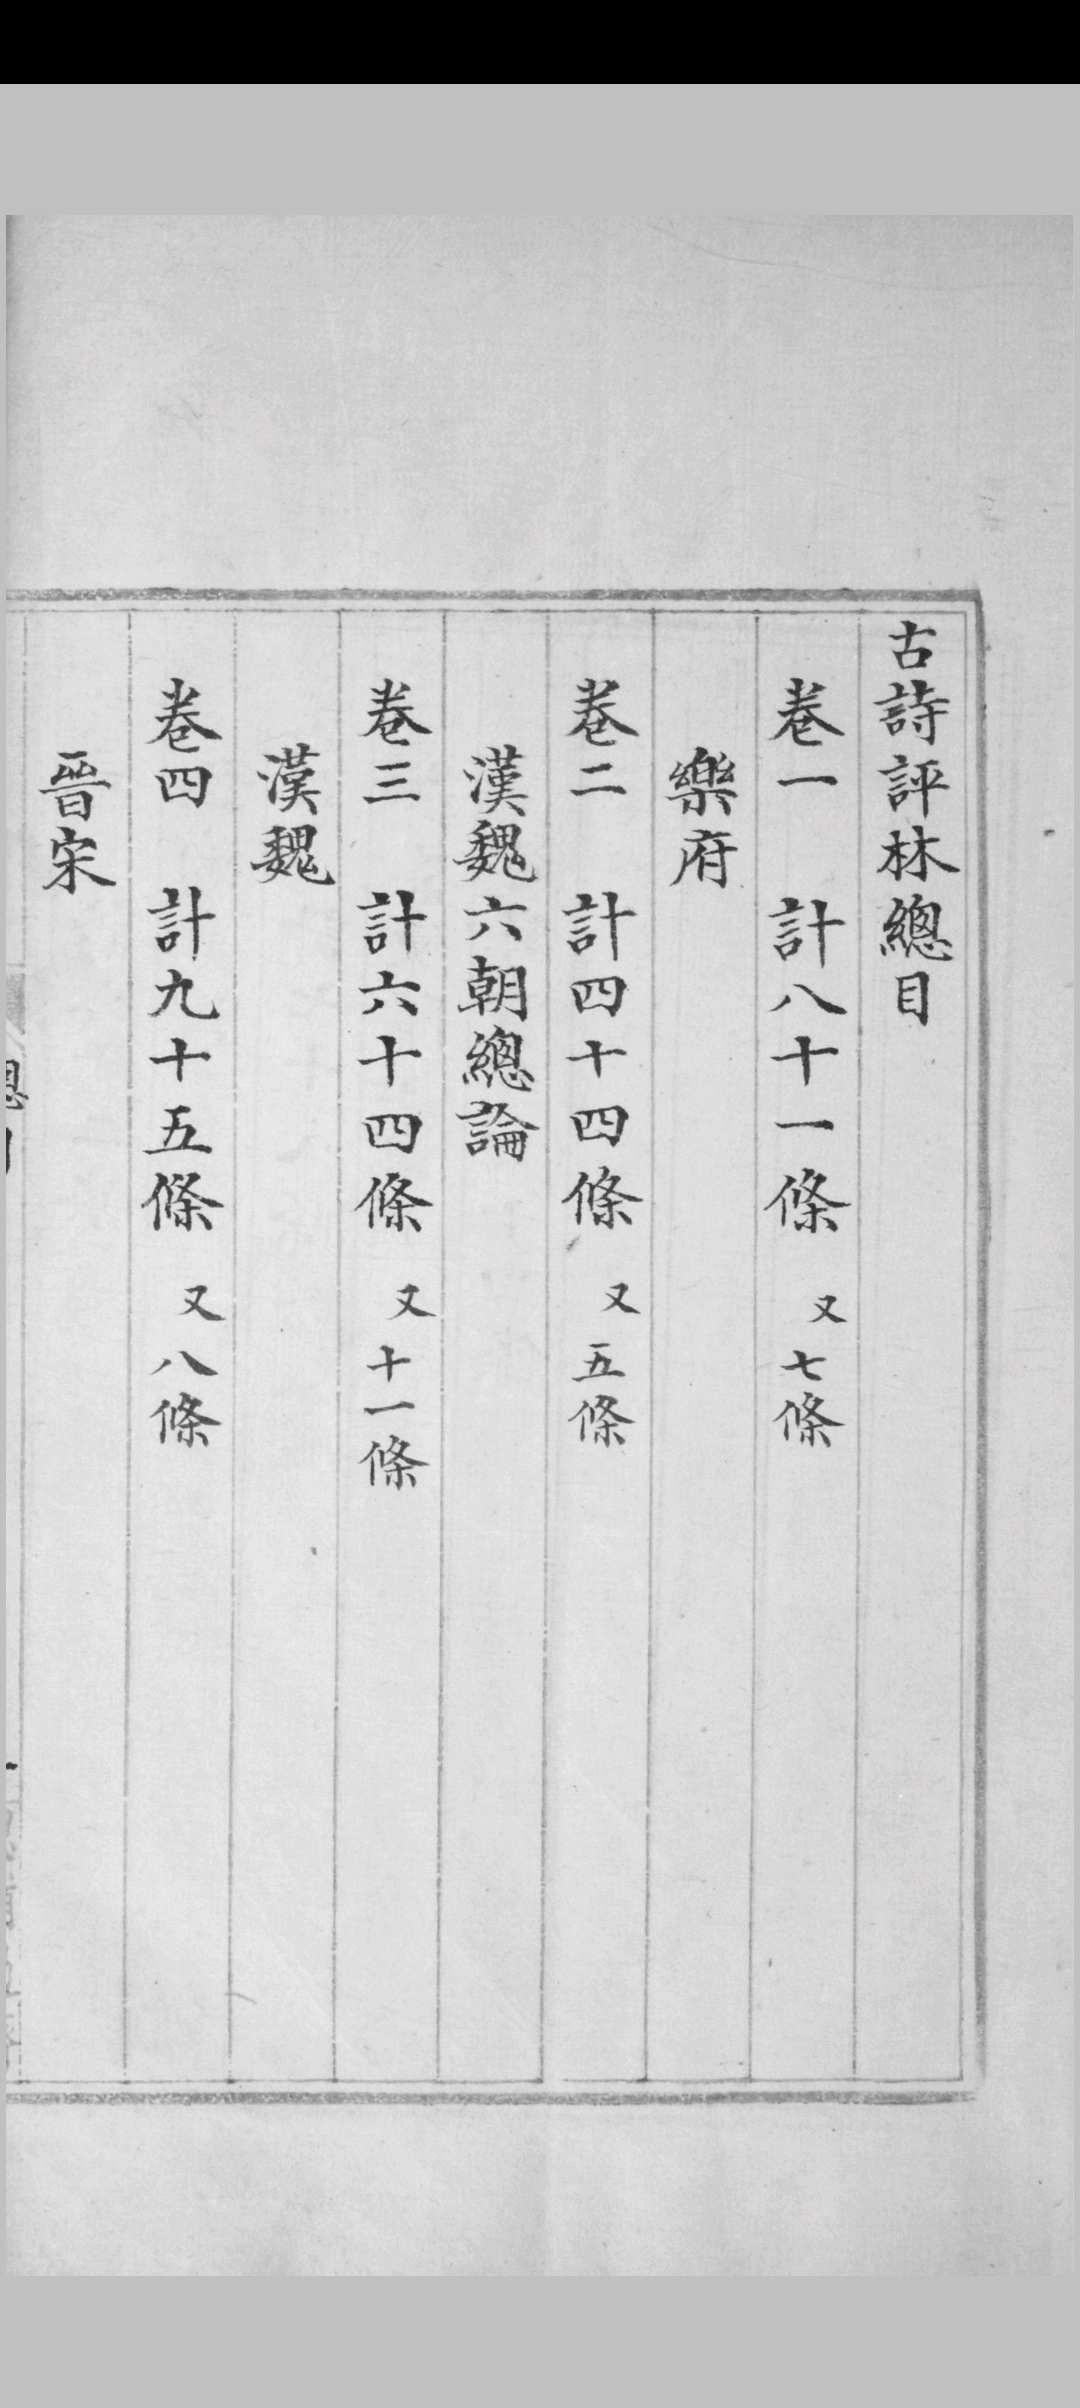 古詩評林總目
卷一 計八十一條 又七條
樂府
卷二 計四十四條 又五條
漢魏六朝總論
卷三 計六十四條 又十一條
漢魏
卷四 計九十五條 又八條
晉宋